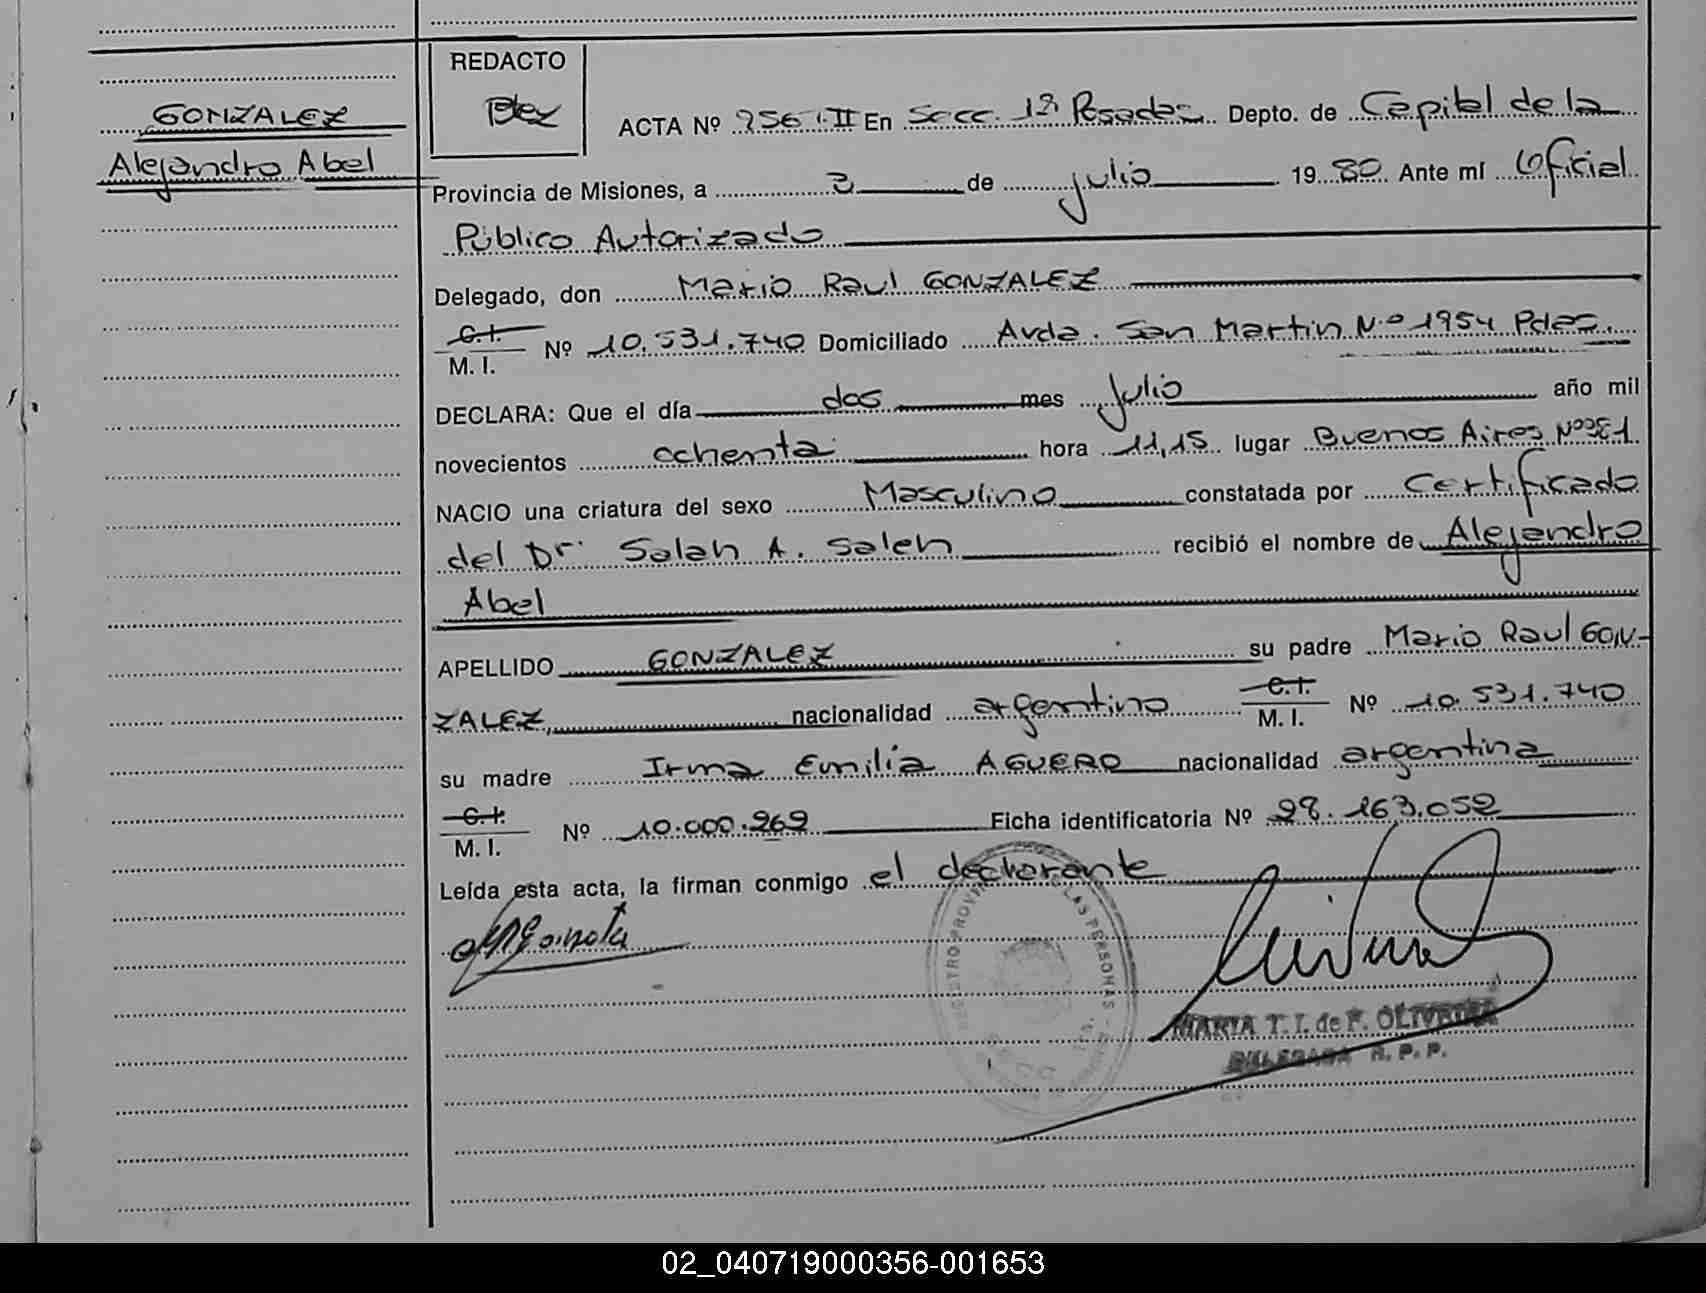 REDACTO
GONZALEZ
Alejandro Abel
ACTA Nº 256-II En Secc. 1ª Posadas Depto. de Capital de la
Provincia de Misiones, a 2 de julio 1980 Ante mí Oficial
Público Autorizado
Delegado, don Mario Raul GONZALEZ
C.I.
M. I. Nº 10.531.740 Domiciliado Avda. San Martin Nº 1954 Pdas.
DECLARA: Que el día dos mes Julio año mil
novecientos ochenta hora 11,15 lugar Buenos Aires Nº
NACIO una criatura del sexo Masculino constatada por Certificado
del Dr. Salah A. Saleh recibió el nombre de Alejandro
Abel
APELLIDO GONZALEZ su padre Mario Raul GON-
ZALEZ, nacionalidad argentino C.I. M. I. Nº 10.531.740
su madre Irma Emilia AGUERO nacionalidad argentina
C.I.
M. I. Nº 10.000.269 Ficha identificatoria Nº 28.163.052
Leída esta acta, la firman conmigo el declarante
MARIA T. I. de F. OLIVEIRA
DELEGADA R. P. P.
02_040719000356-001653